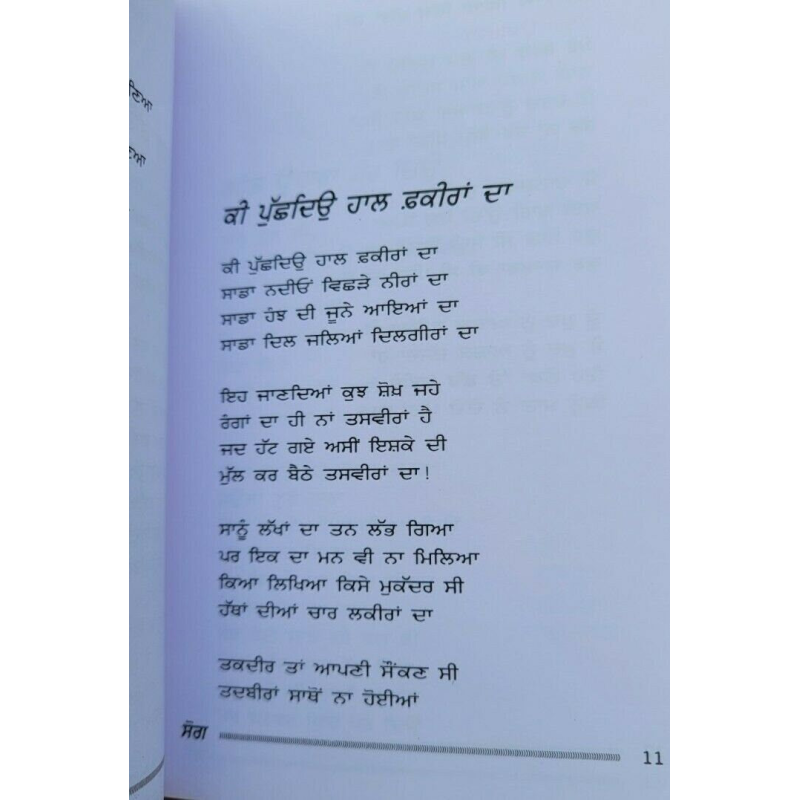 ਣਿਆ
ਣਿਆ
ਕੀ ਪੁੱਛਦਿਉ ਹਾਲ ਫ਼ਕੀਰਾਂ ਦਾ
ਕੀ ਪੁੱਛਦਿਉ ਹਾਲ ਫ਼ਕੀਰਾਂ ਦਾ
ਸਾਡਾ ਨਦੀਓਂ ਵਿਛੜੇ ਨੀਰਾਂ ਦਾ
ਸਾਡਾ ਹੰਝ ਦੀ ਜੂਨੇ ਆਇਆਂ ਦਾ
ਸਾਡਾ ਦਿਲ ਜਲਿਆਂ ਦਿਲਗੀਰਾਂ ਦਾ
ਇਹ ਜਾਣਦਿਆਂ ਕੁਝ ਸ਼ੋਖ਼ ਜਹੇ
ਰੰਗਾਂ ਦਾ ਹੀ ਨਾਂ ਤਸਵੀਰਾਂ ਹੈ
ਜਦ ਹੱਟ ਗਏ ਅਸੀਂ ਇਸ਼ਕੇ ਦੀ
ਮੁੱਲ ਕਰ ਬੈਠੇ ਤਸਵੀਰਾਂ ਦਾ!
ਸਾਨੂੰ ਲੱਖਾਂ ਦਾ ਤਨ ਲੱਭ ਗਿਆ
ਪਰ ਇਕ ਦਾ ਮਨ ਵੀ ਨਾ ਮਿਲਿਆ
ਕਿਆ ਲਿਖਿਆ ਕਿਸੇ ਮੁਕੱਦਰ ਸੀ
ਹੱਥਾਂ ਦੀਆਂ ਚਾਰ ਲਕੀਰਾਂ ਦਾ
ਤਕਦੀਰ ਤਾਂ ਆਪਣੀ ਸੌਂਕਣ ਸੀ
ਤਦਬੀਰਾਂ ਸਾਥੋਂ ਨਾ ਹੋਈਆਂ
ਸੋਗ 11